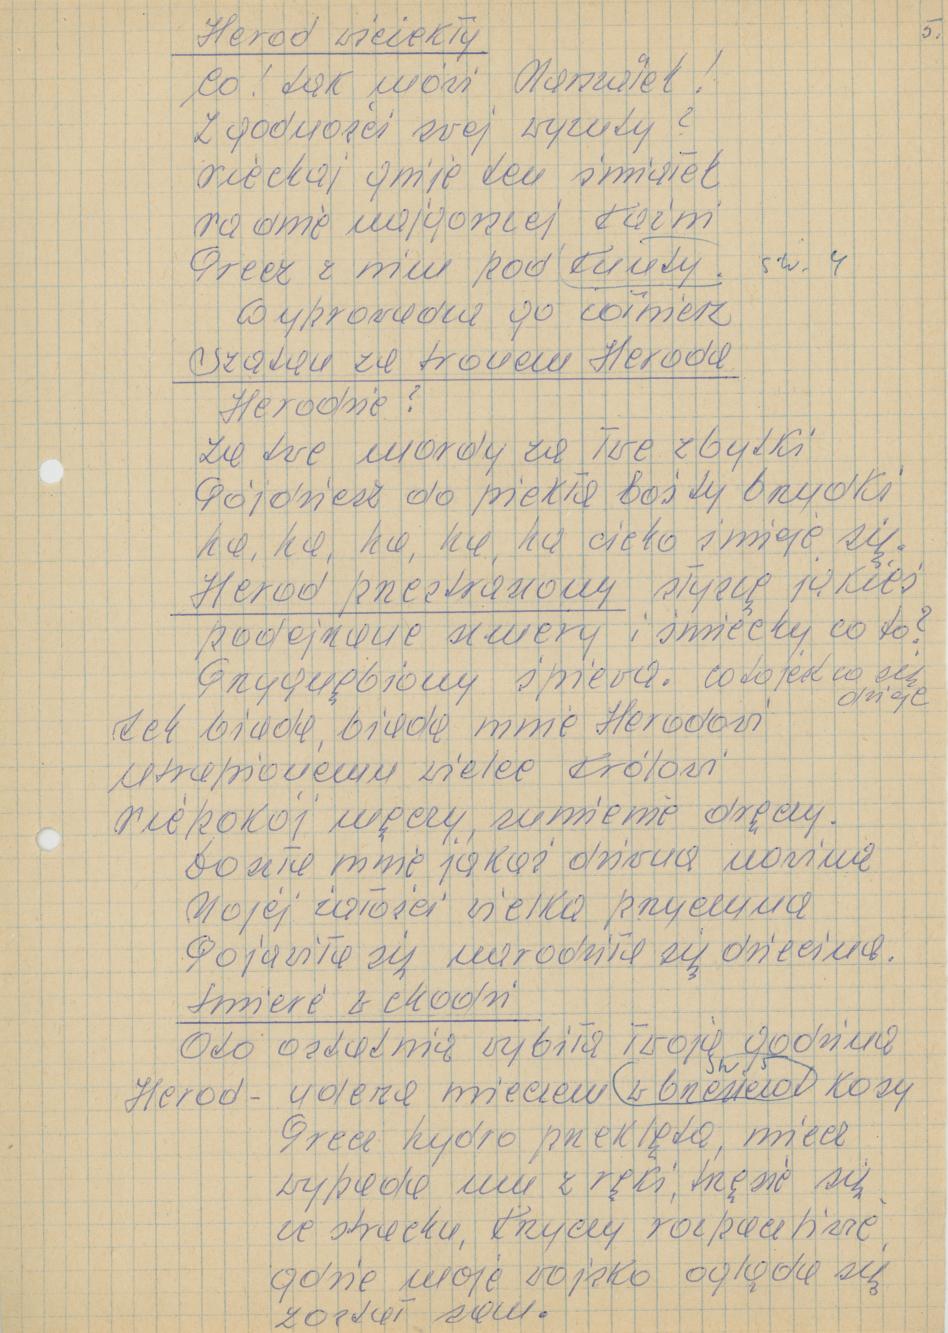 5.
Herod wściekły
Co! tak mówi Marszałek!
Z godności swej wyzuty?
niechaj gnije ten śmiałek
na dnie najgorszej kaźni
Precz z nim pod knuty. str. 4
Wyprowadza go żołnierz
Szatan za tronem Heroda
Herodzie?
Za twe mordy za twe zbytki
Pójdziesz do piekła boś ty brzydki
ha, ha, ha, ha, ha cicho śmieje się.
Herod przestraszony słyszę jakieś
podejrzane szmery i śmiechy co to?
Przygnębiony śpiewa. co to jest co się
dzieje
Ach biada, biada mnie Herodowi
utrapionemu wielce Królowi
niepokój męczy, sumienie dręczy.
Doszła mnie jakaś dziwna nowina
Mojej żałości wielka przyczyna
Pojawiła się narodziła się dziecina.
Śmierć wchodzi
Oto ostatnia wybiła twoja godzina
str. 5
Herod - uderza mieczem w brzeszczot kosy
Precz hydro przeklęta, miecz
wypada mu z ręki, trzęsie się
ze strachu, krzyczy rozpaczliwie
gdzie moje wojsko ogląda się
został sam.